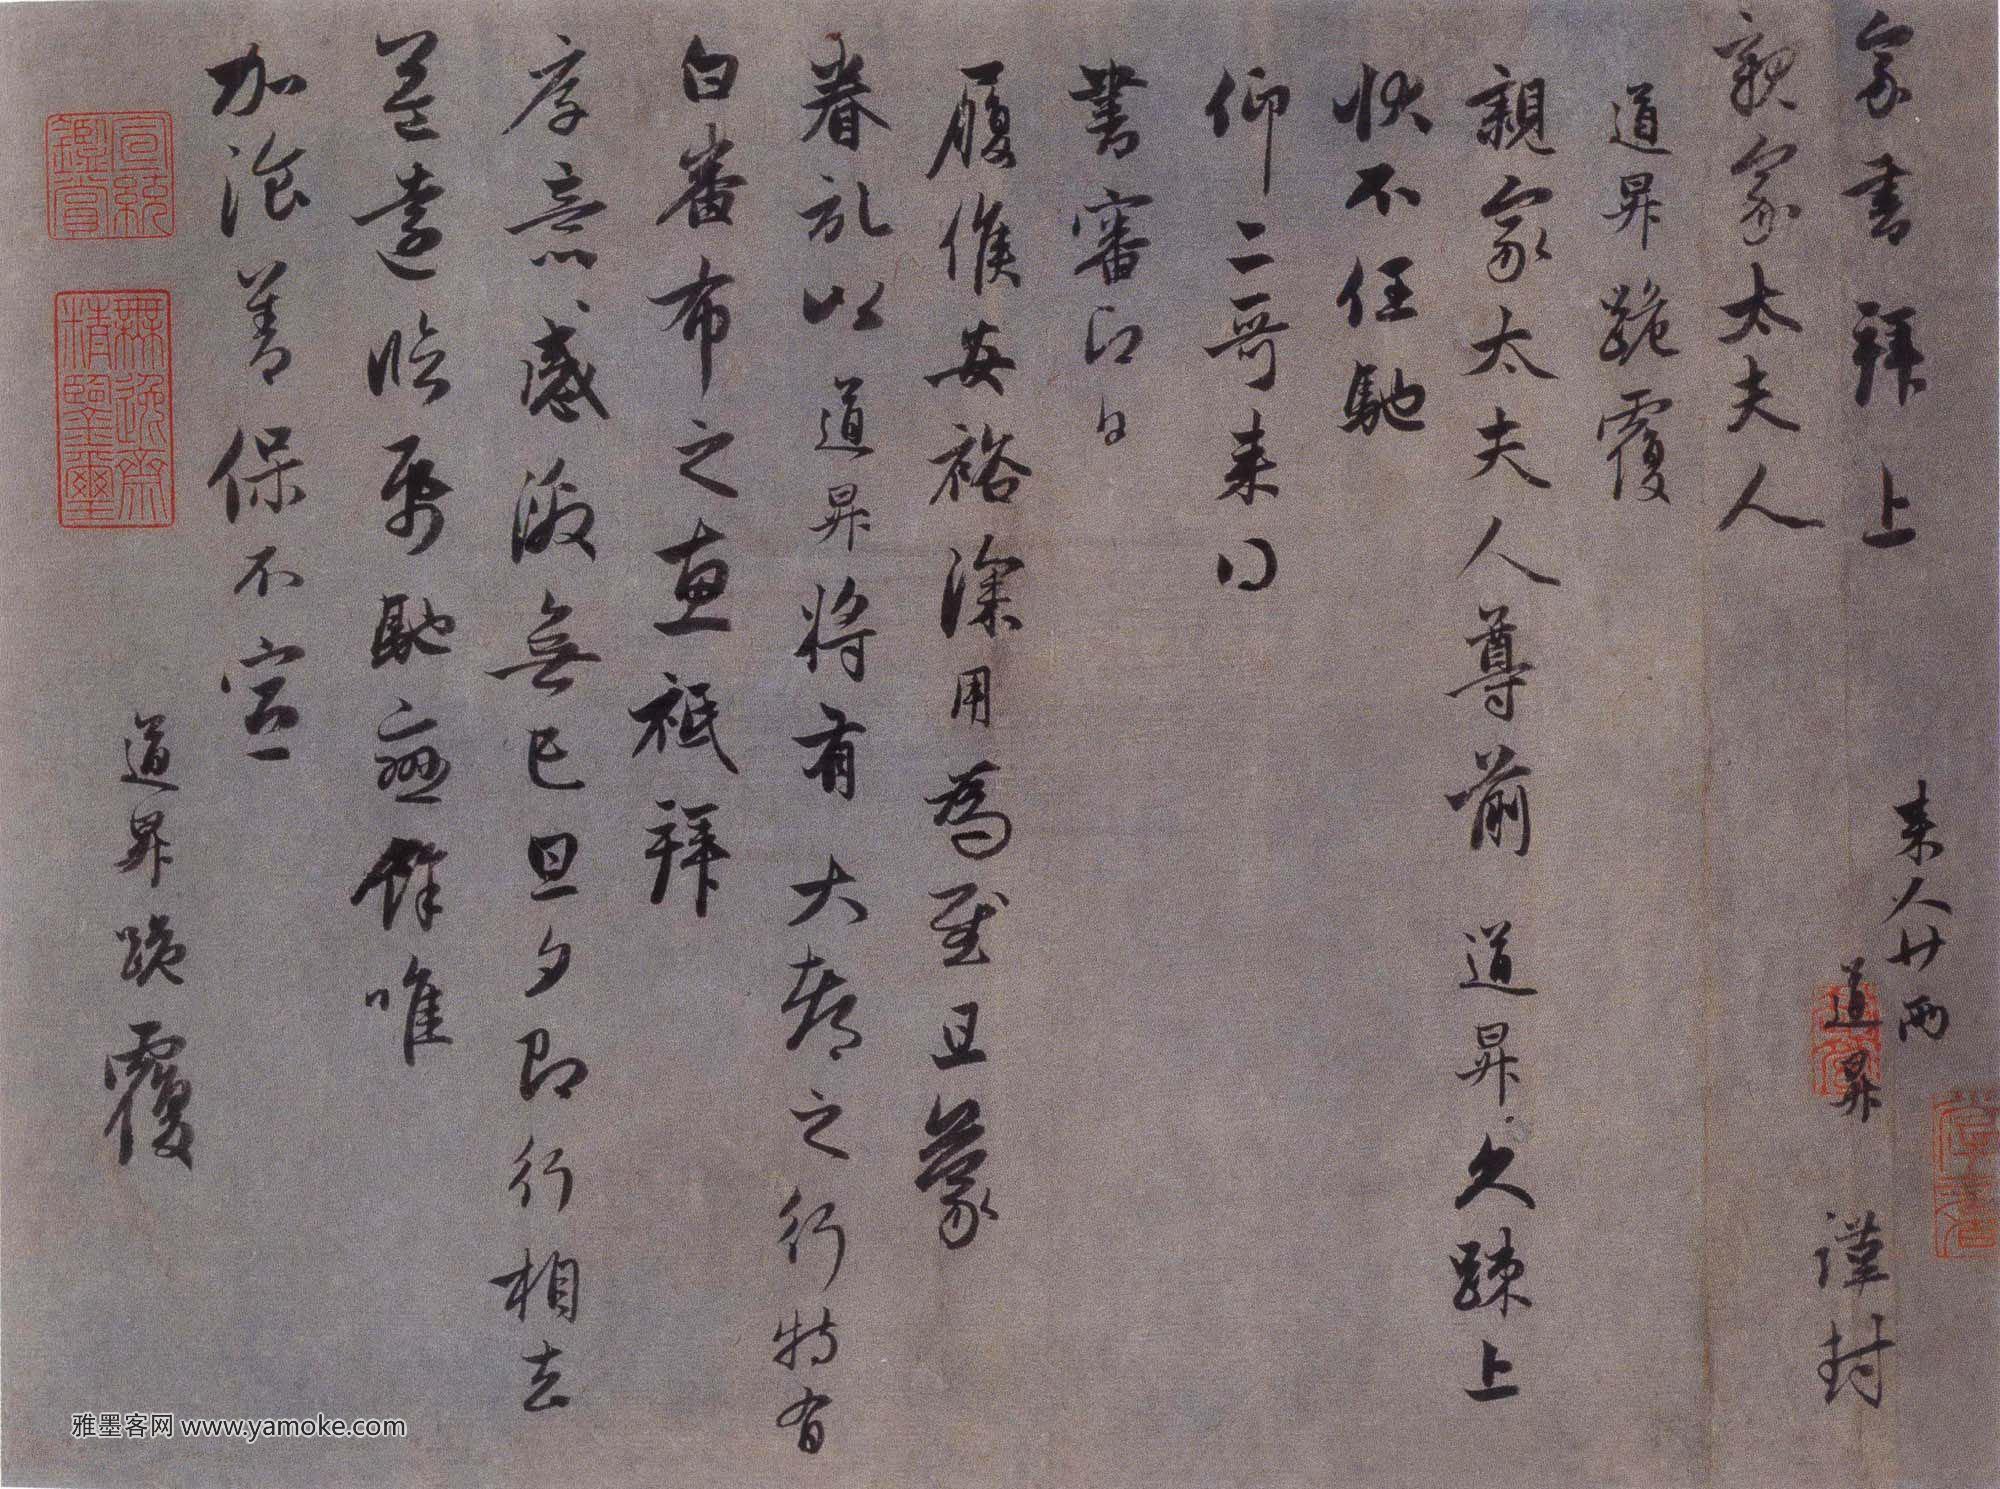 家書拜上
親家太夫人
来人廿兩
道昇 謹封
道昇跪覆
親家太夫人尊前 道昇久疎上
狀不任馳
仰二哥来得
書審即日
履候安裕深用為慰且蒙
眷記以道昇將有大都之行特有
白番布之惠祗拜
厚意感激無已旦夕即行相去
益遠臨紙馳戀餘唯
加飡善保不宣
道昇跪覆
宣統鑑賞
無逸齋精鑒璽
雅墨客网 www.yamoke.com